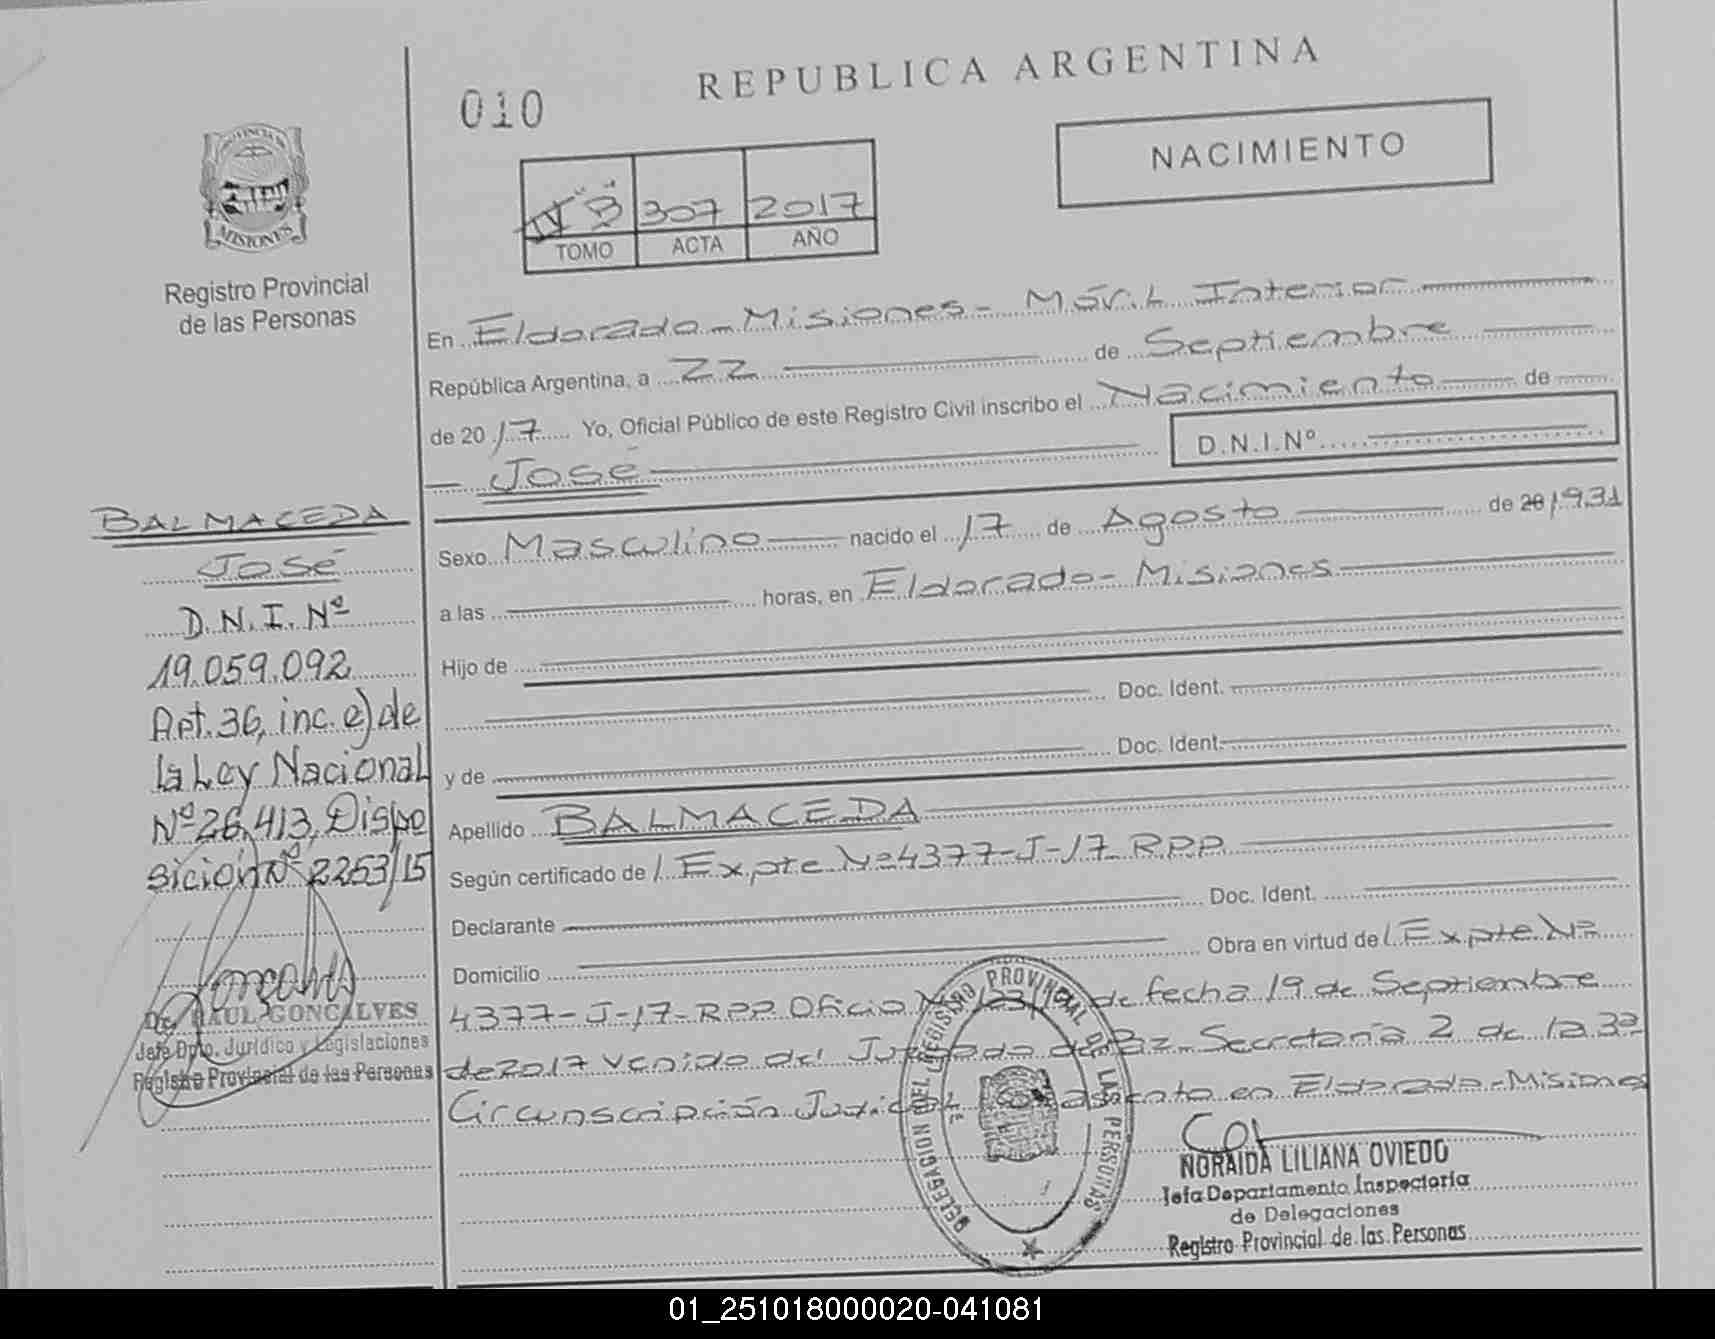 REPUBLICA ARGENTINA
010
NACIMIENTO
IV "B" 307 2017
TOMO ACTA AÑO
PROVINCIA DE
MISIONES
Registro Provincial
de las Personas
En Eldorado - Misiones - Móvil Interior
República Argentina, a 22 de Septiembre
de 2017 Yo, Oficial Público de este Registro Civil inscribo el Nacimiento de
José D.N.I.Nº
Sexo Masculino nacido el 17 de Agosto de 20/1931
a las horas, en Eldorado - Misiones
Hijo de
Doc. Ident.
y de Doc. Ident.
Apellido BALMACEDA
Según certificado de / Expte Nº 4377-J-17 RPP
Declarante Doc. Ident.
Domicilio Obra en virtud de / Expte. Nº
4377-J-17-RPP Oficio Nº de fecha 19 de Septiembre
de 2017 venido del Juzgado de Paz Secretaría 2 de la 3ra
Circunscripción Judicial asiento en Eldorado - Misiones
BALMACEDA
José
D.N.I. Nº
19.059.092
Art. 36, inc. e) de
la Ley Nacional
Nº 26.413, Dispo
sición Nº 2263/15
Dr. RAUL GONCALVES
Jefe Dpto. Jurídico y Legislaciones
Registro Provincial de las Personas
DELEGACION DEL REGISTRO PROVINCIAL DE LAS PERSONAS
NORAIDA LILIANA OVIEDO
Jefa Departamento Inspectoría
de Delegaciones
Registro Provincial de las Personas
01_251018000020-041081